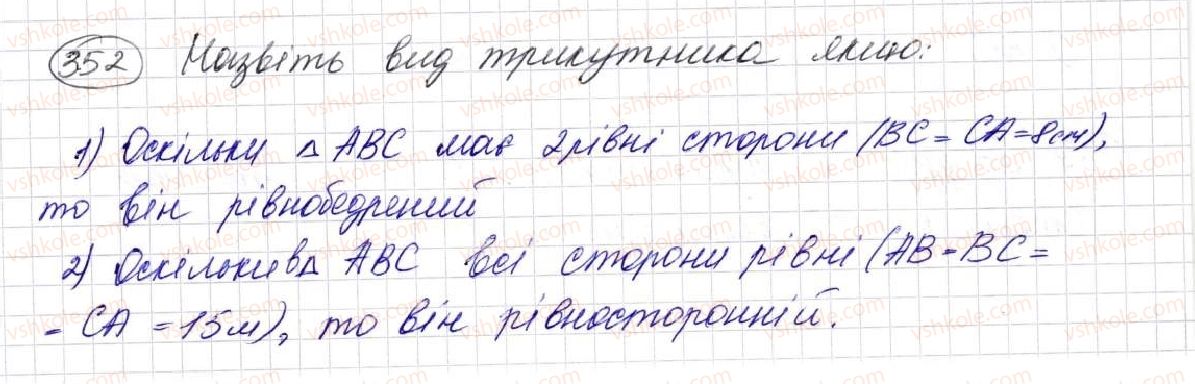 352 Назвіть вид трикутника якщо:
1) Оскільки △ ABC має 2 рівні сторони (BC = CA = 8см),
то він рівнобедрений
2) Оскільки в △ ABC всі сторони рівні (AB = BC =
= CA = 15м), то він рівносторонній.